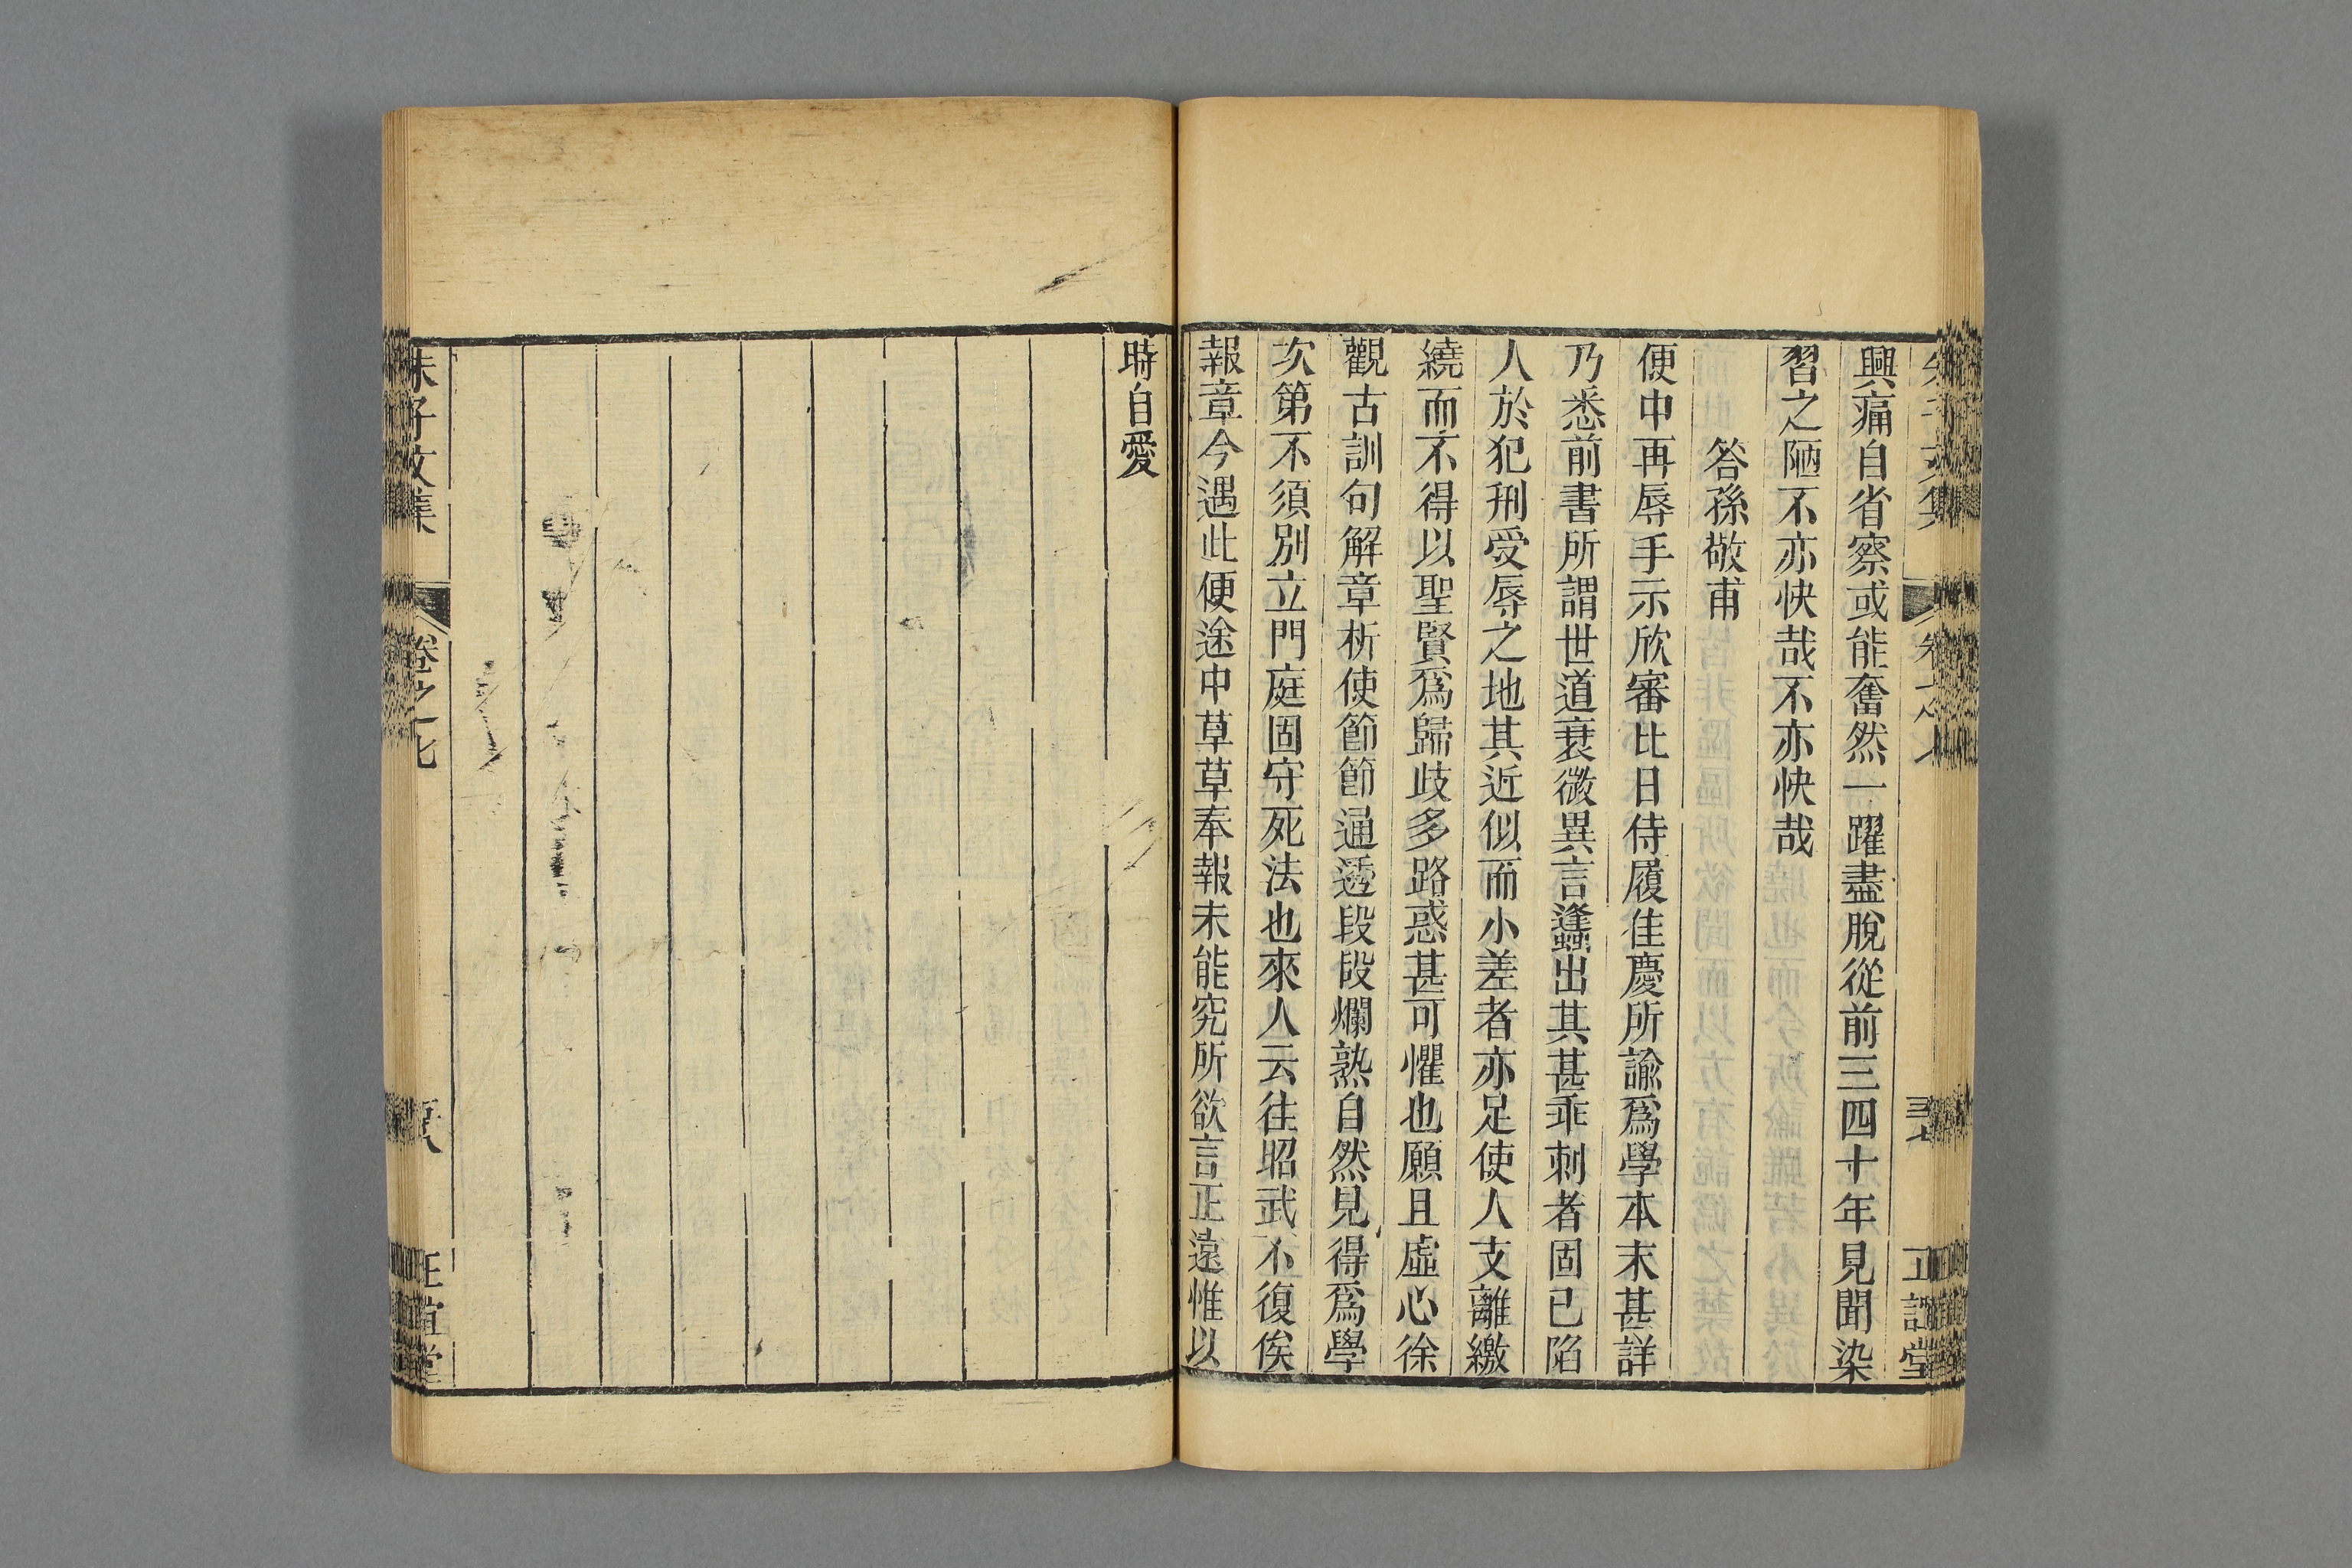 興痛自省察或能奮然一躍盡脫從前三四十年見聞染
習之陋不亦快哉不亦快哉
答孫敬甫
便中再辱手示欣審比日侍履佳慶所諭爲學本末甚詳
乃悉前書所謂世道衰微異言蠭出其甚乖刺者固已陷
人於犯刑受辱之地其近似而小差者亦足使人支離繳
繞而不得以聖賢爲歸歧多路惑甚可懼也願且虛心徐
觀古訓句解章析使節節通透段段爛熟自然見得爲學
次第不須別立門庭固守死法也來人云往昭武不復俟
報章今遇此便途中草草奉報未能究所欲言正遠惟以
時自愛
朱子文集 卷之十七 正誼堂